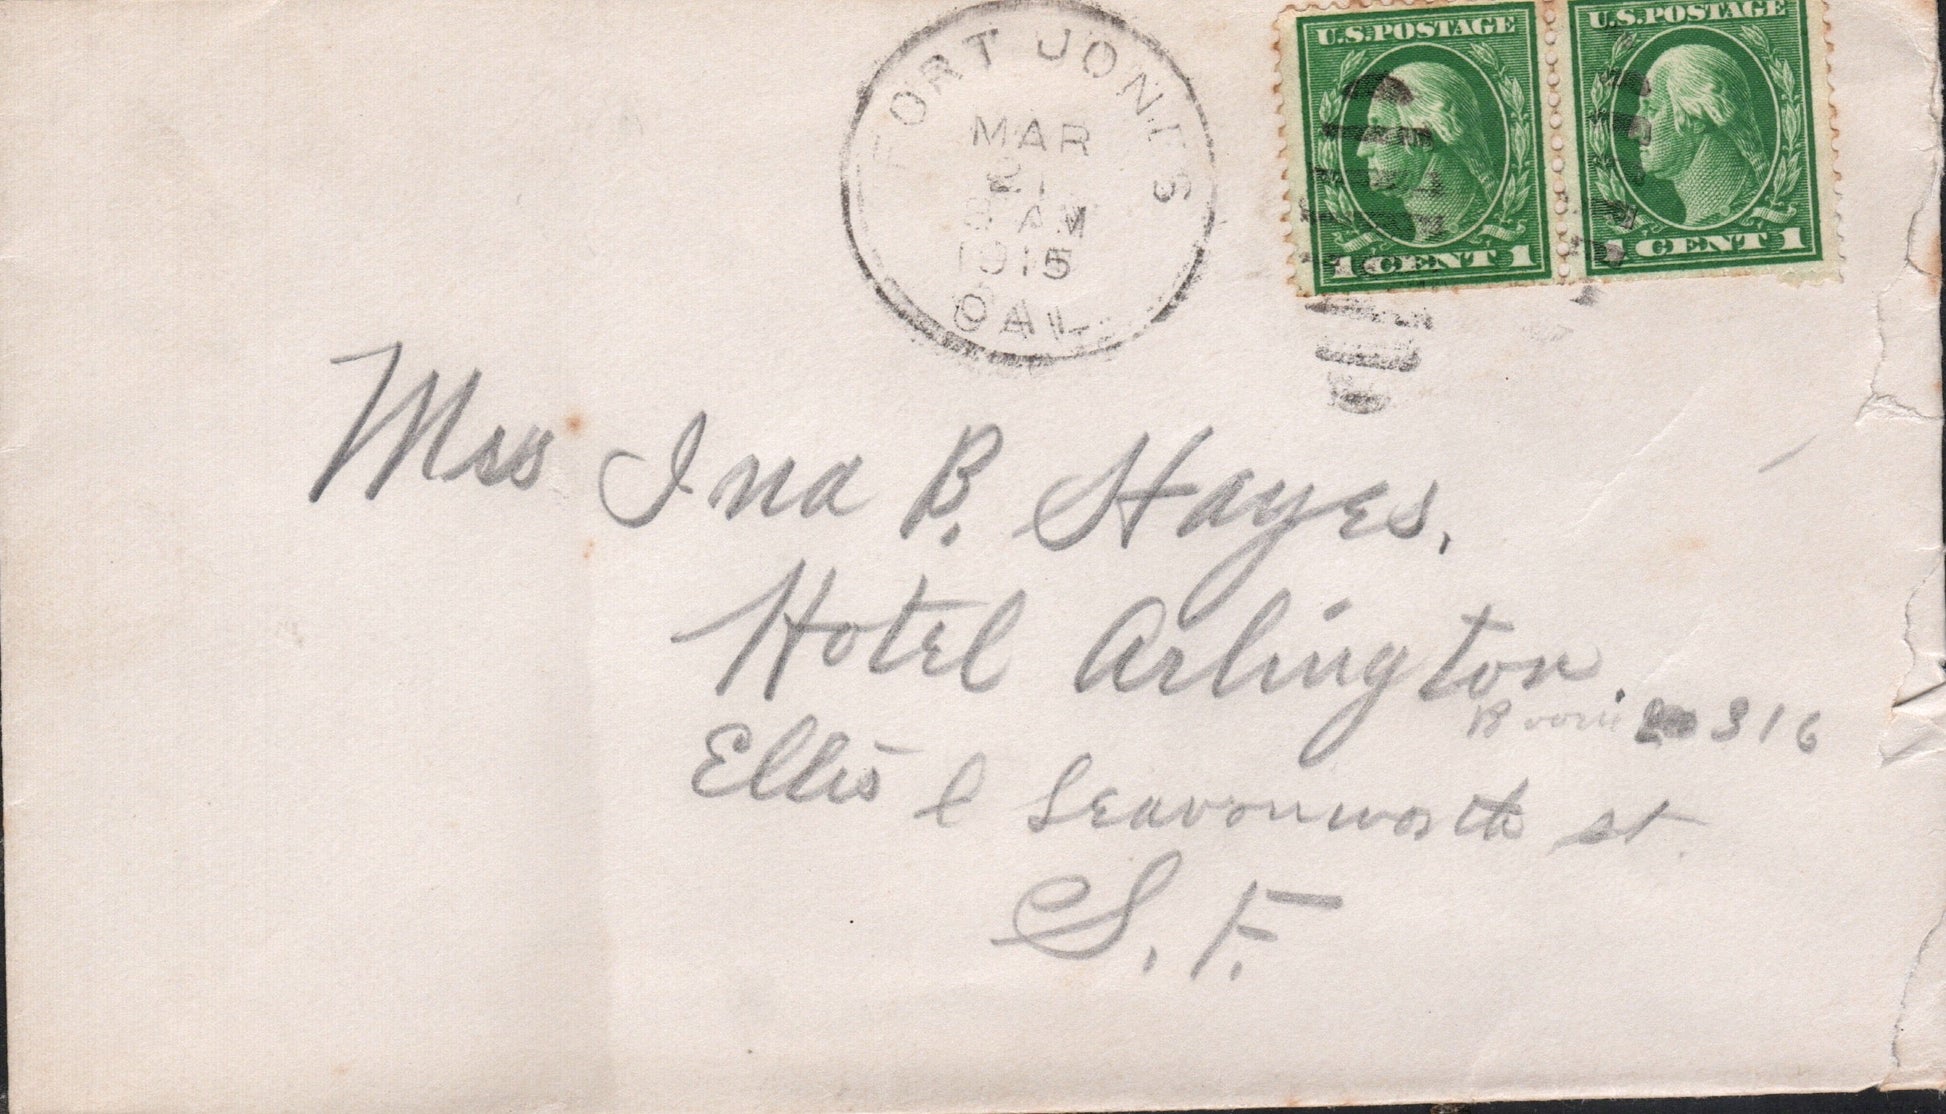 FORT JONES
MAR
21
9 AM
1915
CAL.
U.S. POSTAGE
1 CENT 1
U.S. POSTAGE
1 CENT 1
Mss Ina B. Hayes,
Hotel Arlington.
Room 316
Ellis & Leavonworth st.
S. F.